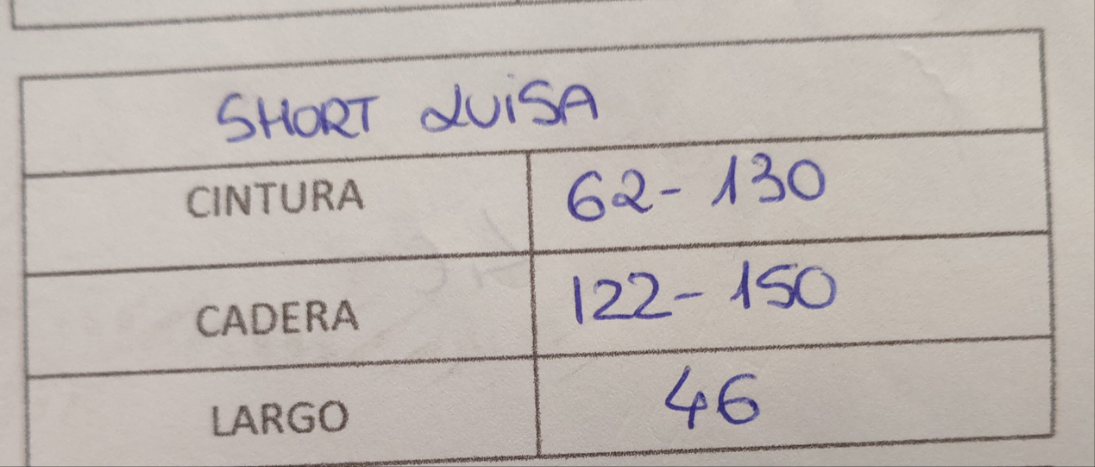 SHORT LUISA
CINTURA 62-130
CADERA 122-150
LARGO 46